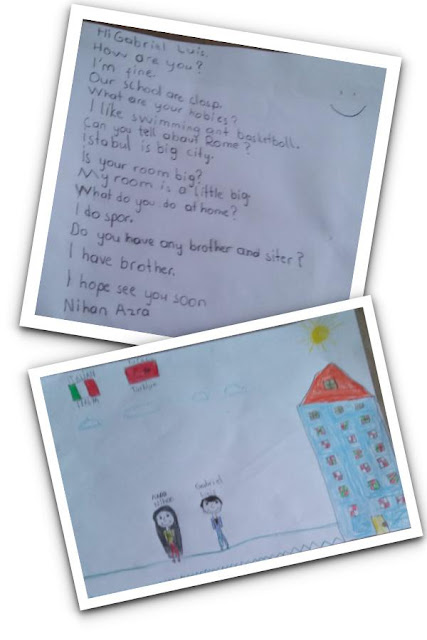 Hi Gabrial Luis.
How are you?
I'm fine.
Our school are closp.
What are your hobies?
I like swimming ant basketboll.
Can you tell about Rome?
Istabul is big city.
Is your room big?
My room is a little big
What do you do at home?
I do spor.
Do you have any brother and siter?
I have brother.
I hope see you soon
Nihan Azra
İTALYA
Türkiye
Gabriel